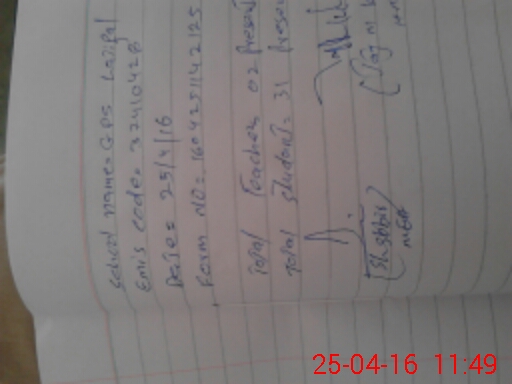 School name= GPS Ladigal
Emis code= 37410428
Date= 25/4/16
Form NO= 16042511142125
Total Teacher 02 present
Total Student= 31 present
(Shabbir)
MEA
25-04-16 11:49